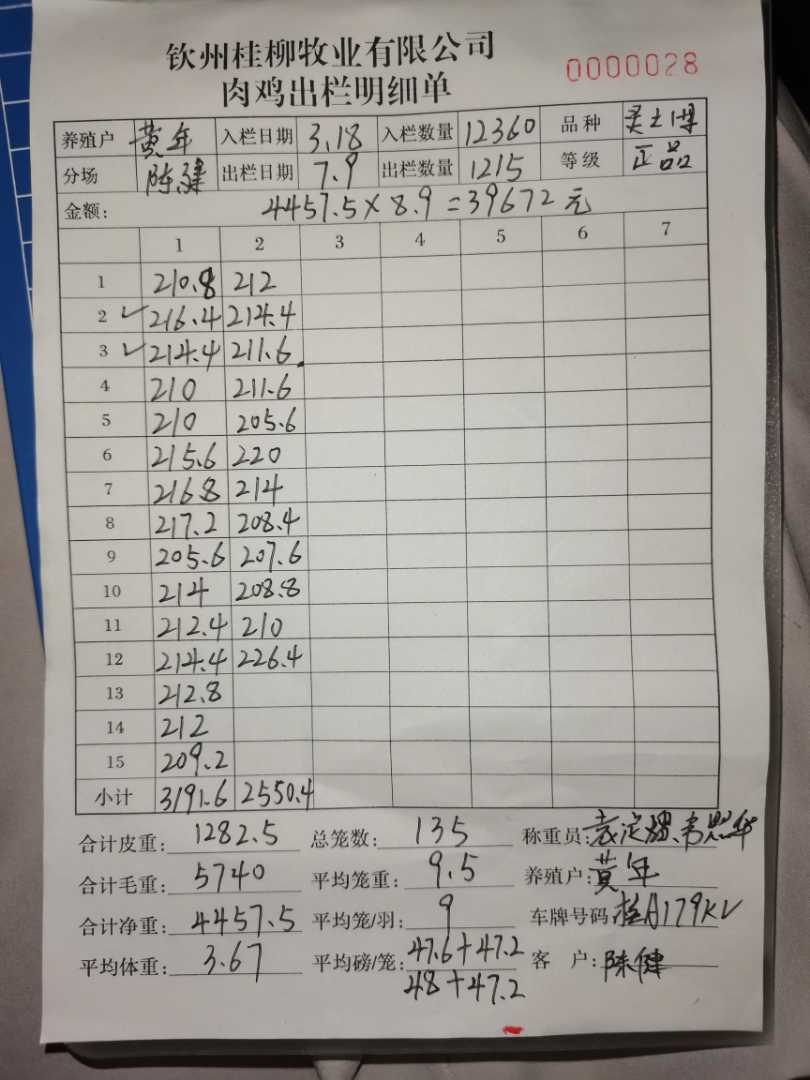 钦州桂柳牧业有限公司
肉鸡出栏明细单 0000028
养殖户 黄年 入栏日期 3.18 入栏数量 12360 品种 灵土博
分场 陈健 出栏日期 7.9 出栏数量 1215 等级 正品
金额: 4457.5×8.9=39672元
1 2 3 4 5 6 7
1 210.8 212
2 ✓216.4 214.4
3 ✓214.4 211.6
4 210 211.6
5 210 205.6
6 215.6 220
7 216.8 214
8 217.2 208.4
9 205.6 207.6
10 214 208.8
11 212.4 210
12 214.4 226.4
13 212.8
14 212
15 209.2
小计 3191.6 2550.4
合计皮重: 1282.5 总笼数: 135 称重员:
合计毛重: 5740 平均笼重: 9.5 养殖户: 黄年
合计净重: 4457.5 平均笼/羽: 9 车牌号码: 桂A179KV
平均体重: 3.67 平均磅/笼: 47.6+47.2 客 户: 陈健
48+47.2